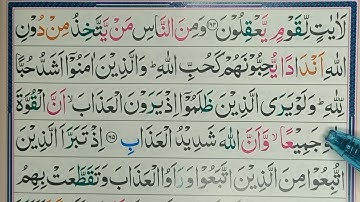 لَاٰیٰتٍ لِّقَوْمٍ یَّعْقِلُوْنَ ﴿۱۶۴﴾ وَمِنَ النَّاسِ مَنْ یَّتَّخِذُ مِنْ دُوْنِ
اللّٰهِ اَنْدَادًا یُّحِبُّوْنَهُمْ كَحُبِّ اللّٰهِ ؕ وَالَّذِیْنَ اٰمَنُوْۤا اَشَدُّ حُبًّا
لِّلّٰهِ ؕ وَلَوْ یَرَی الَّذِیْنَ ظَلَمُوْۤا اِذْ یَرَوْنَ الْعَذَابَ ۙ اَنَّ الْقُوَّةَ
جَمِیْعًا ۙ وَّاَنَّ اللّٰهَ شَدِیْدُ الْعَذَابِ ﴿۱۶۵﴾ اِذْ تَبَرَّاَ الَّذِیْنَ
اتُّبِعُوْا مِنَ الَّذِیْنَ اتَّبَعُوْا وَرَاَوُا الْعَذَابَ وَتَقَطَّعَتْ بِهِمُ